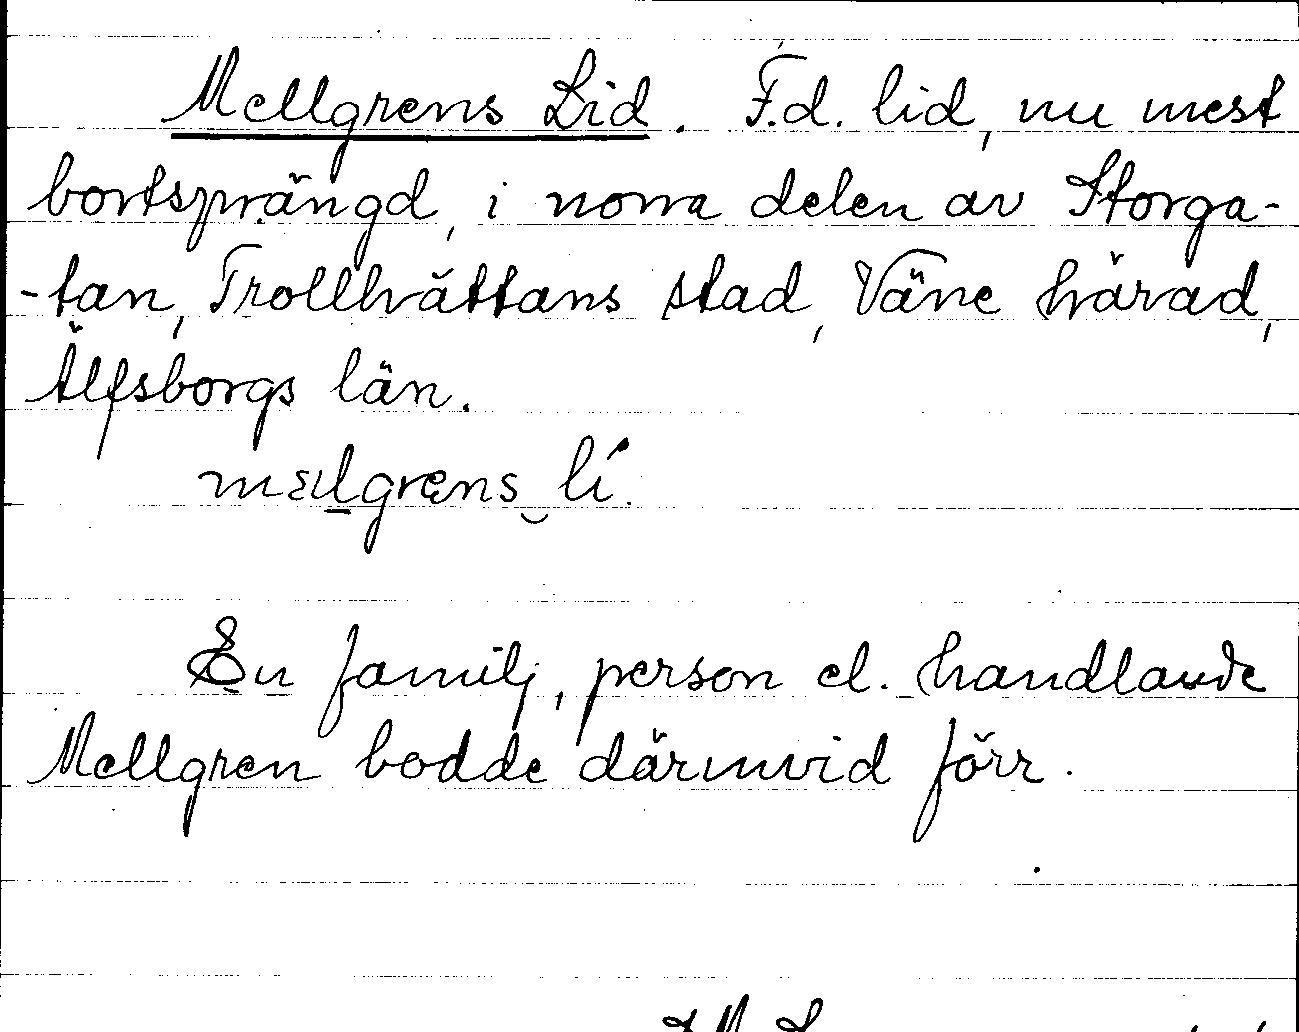 Mellgrens Lid. F.d. lid, nu mest
bortsprängd, i norra delen av Storga-
-tan, Trollhättans stad, Väne härad,
Älfsborgs län.
mεllgrens‿lí.
En familj, person el. handlande
Mellgren bodde därinvid förr.